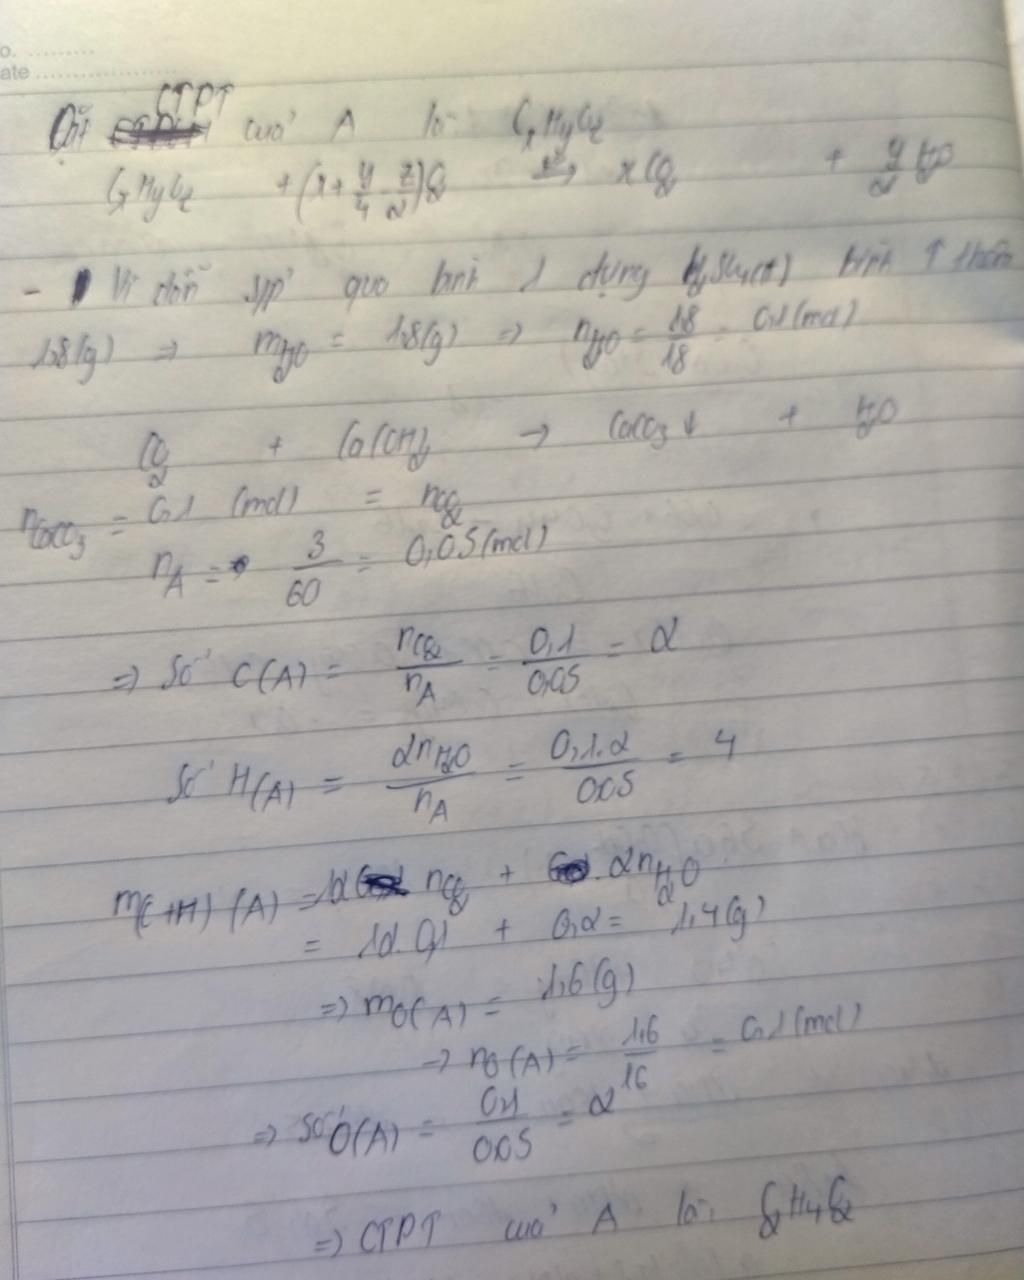 o. ..........
ate ....................
CTPT
Đặt của A là: CxHyOz
CxHyOz + (x + y/4 - z/2)O2 t°→ xCO2 + y/2 H2O
- Vì dẫn sp' qua bình 1 đựng H2SO4(đ) bình ↑ thêm
1,8(g) ⇒ mH2O = 1,8(g) ⇒ nH2O = 1,8/18 = 0,1(mol)
CO2 + Ca(OH)2 → CaCO3↓ + H2O
nCaCO3 = 0,1 (mol) = nCO2
nA = 3/60 = 0,05(mol)
⇒ Số C(A) = nCO2/nA = 0,1/0,05 = 2
Số H(A) = 2nH2O/nA = 0,1.2/0,05 = 4
m(C+H)(A) = 12 nCO2 + 2nH2O
= 12.0,1 + 0,2 = 1,4(g)
⇒ mO(A) = 1,6(g)
→ nO(A) = 1,6/16 = 0,1(mol)
⇒ Số O(A) = 0,1/0,05 = 2
⇒ CTPT của A là: C2H4O2